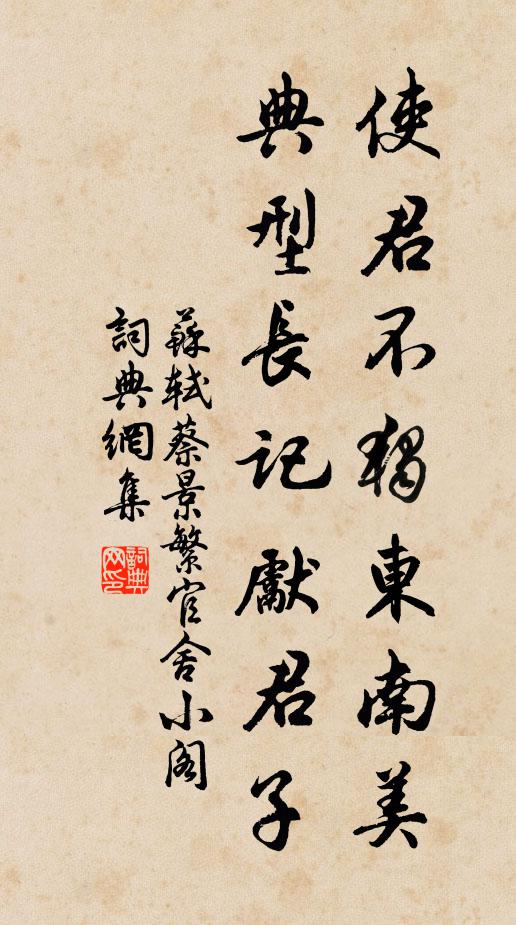 使君不獨東南美
典型長記獻君子
蘇軾蔡景繁官舍小閣
詞典網集
詞典網印